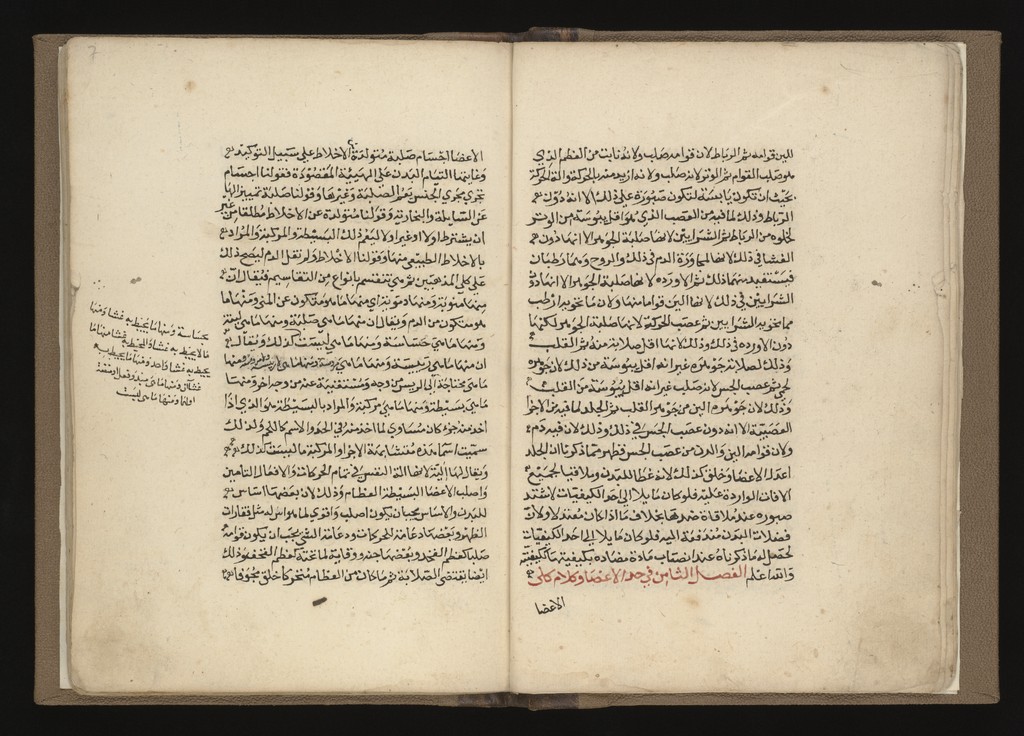 للين قوامه ثم الرباط لان قوامه صلب ولانه نابت من العظم الذي
هو صلب القوام ثم الوتر لانه صلب ولانه ازيد منه بالحركة والة الحركة
يجب ان تكون يابسة لتكون صبورة على ذلك الا انه دون
الرباط وذلك لما فيه من العصب الذي هو اقل يبوسة من الوتر
لخلوه من الرباط ثم الشرايين لانها صلبة الجوهر الا انها دون
الغشا في ذلك لانها لمجاورة الدم في ذلك والروح وهما رطبان
فيستفيد منهما ذلك ثم الاورده لانها صلبة الجوهر الا انها دون
الشرايين في ذلك لانها الين قواما منها ولان ما تحويه ارطب
مما تحويه الشرايين ثم عصب الحركة لانها صلبة الجوهر لكنها
دون الاورده في ذلك وذلك لانها اقل صلابة منه ثم القلب
وذلك لصلابة جوهره غير انه اقل يبوسة من ذلك لان جوهره
لحمي ثم عصب الحس لانه صلب غير انه اقل يبوسة من القلب
وذلك لان جوهره الين من جوهر القلب ثم الجلد لما فيه من الاجزا
العصبية الا انه دون عصب الحس في ذلك وذلك لان فيه دم
ولان قوامه الين والدن من عصب الحس فظهر مما ذكرنا ان الجلد
اعدل الاعضا وخلق كذلك لانه غطا للبدن وملاقيا لجميع
الافات الواردة عليه فلو كان مايلا الي احد الكيفيات لاشتد
ضرره عند ملاقاة ضدها بخلاف ما اذا كان معتدلا ولان
فضلات البدن مندفعة اليه فلو كان مايلا الي احد الكيفيات
لحصل له ما ذكرناه عند انصباب مادة مضاده بكيفية ما لكيفيته
والله اعلم الفصل الثامن في حد الاعضا وكلام كلي
الاعضا
الاعضا اجسام صلبة متولدة الاخلاط علي سبيل التوكيد
وغايتها التيام البدن على الهيية المقصودة فقولنا اجسام
تجري مجري الجنس يعم الصلبة وغيرها وقولنا صلبة تمييز لها
عن السيالة والبخارية وقولنا متولدة عن الاخلاط مطلقا من غير
ان يشترط اولا او غير اولا ليعم ذلك البسيطة والمركبة والمراد
بالاخلاط الطبيعي منها وقولنا الاخلاط ولم نقل الدم ليصح ذلك
على كلي المذهبين ثم هي تنقسم بانواع من التقاسيم فيقال ان
منها منوية ومنها دموية اي منها ما هو متكون عن المني ومنها ما
هو متكون من الدم ويقال ان منها ما هي صلبة ومنها ما هي لينة
ومنها ما هي حساسة ومنها ما هي ليست كذلك ويقال
ان منها ما هي رئيسة ومنها ما هي ومنها
ما هي محتاجة الي الرييس من وجه ومستغنية عنه من وجه اخر ومنها
ما هي بسيطة ومنها ما هي مركبة والمراد بالبسيطة هو الذي اذا
اخذ منه جزء كان مساوي لما اخذ منه في الحد والاسم كاللحم ولذلك
سميت اسما هذه متشابهة الاجزا والمركبة ما ليست كذلك
ويقال لها الية لانها الة النفس في تمام الحركات والافعال التامين
واصلب الاعضا البسيطة العظام وذلك لان بعضها اساس
للبدن والاساس يجب ان يكون اصلب واقوي لما هو اس له مثل فقارات
الظهر وبعضها دعامة للحركات ودعامة الشي يجب ان يكون قوامه
صلبا كعظم الفخد وبعضها جنة ووقاية لما تحته كعظم القحف وذلك
ايضا يقتضي الصلابة ثم ما كان من العظام متحركا خلق مجوفا
حساسة ومنها ما يحيط به غشا ومنها
ما لا يحيط به غشا والمحيط به غشا منها ما
يحيط به غشا واحد ومنها ما يحيط به
غشاان ومنها ما هي مبدا
اولها ومنها ما هي ليست